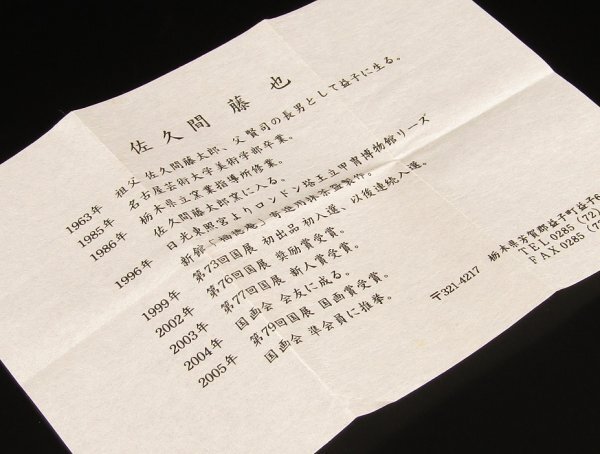 佐久間 藤也
1963年 祖父 佐久間藤太郎、父 賢司の長男として益子に生る。
1985年 名古屋芸術大学美術学部卒業。
1986年 栃木県立窯業指導所修業。
佐久間藤太郎窯に入る。
1996年 日光東照宮よりロンドン塔王立甲冑博物館リーズ
新館
1999年 第73回国展 初出品 初入選、以後連続入選。
2002年 第76回国展 奨励賞受賞。
2003年 第77回国展 新人賞受賞。
2004年 国画会 会友に成る。
2005年 第79回国展 国画賞受賞。
国画会 準会員に推挙。
〒321-4217 栃木県芳賀郡益子町益子6
TEL 0285 (72)
FAX 0285 (72